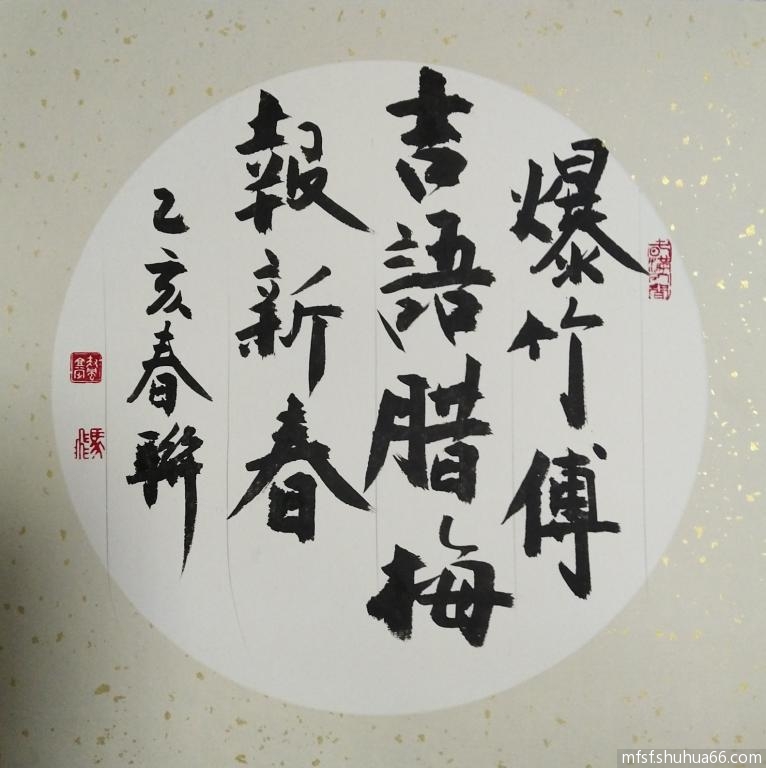 爆竹傅
吉語腊梅
報新春
乙亥春聯
mfsf.shuhua66.com